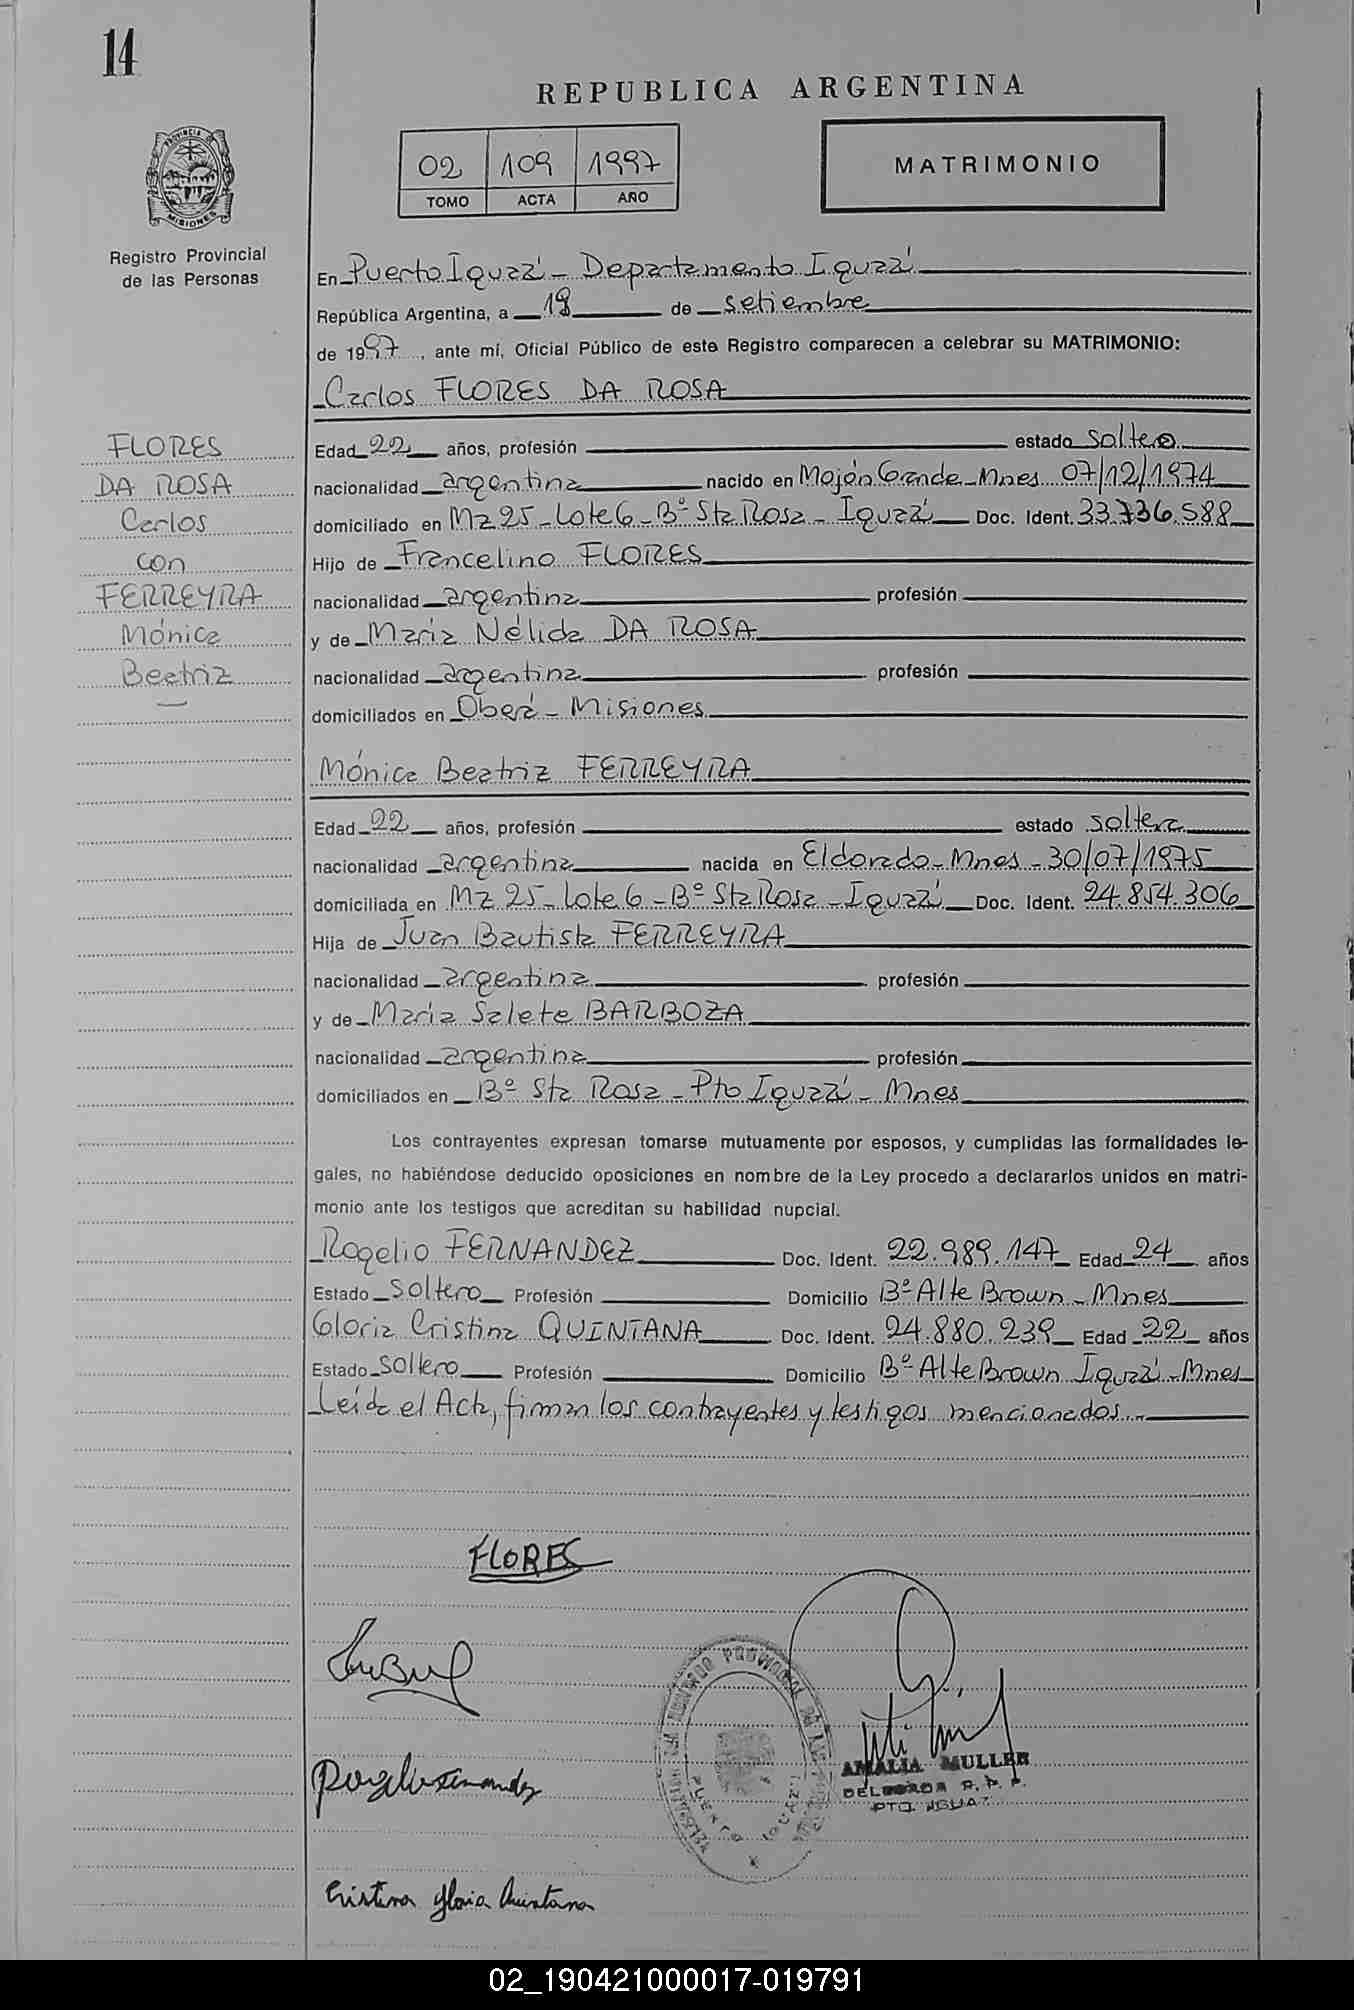 14
REPUBLICA ARGENTINA
02 109 1997
TOMO ACTA AÑO
MATRIMONIO
PROVINCIA DE
MISIONES
Registro Provincial
de las Personas
En Puerto Iguazú - Departamento Iguazú
República Argentina, a 18 de setiembre
de 1997, ante mí, Oficial Público de este Registro comparecen a celebrar su MATRIMONIO:
Carlos FLORES DA ROSA
FLORES
DA ROSA
Carlos
con
FERREYRA
Mónica
Beatriz
Edad 22 años, profesión estado soltero
nacionalidad argentina nacido en Mojón Grande - Mnes 07/12/1974
domiciliado en Mz 25 - Lote 6 - Bº Sta Rosa - Iguazú Doc. Ident. 33.736.588
Hijo de Francelino FLORES
nacionalidad argentina profesión
y de María Nélida DA ROSA
nacionalidad argentina profesión
domiciliados en Oberá - Misiones
Mónica Beatriz FERREYRA
Edad 22 años, profesión estado soltera
nacionalidad argentina nacida en Eldorado - Mnes - 30/07/1975
domiciliada en Mz 25 - Lote 6 - Bº Sta Rosa - Iguazú Doc. Ident. 24.854.306
Hija de Juan Bautista FERREYRA
nacionalidad argentina profesión
y de María Salete BARBOZA
nacionalidad argentina profesión
domiciliados en Bº Sta Rosa - Pto Iguazú - Mnes
Los contrayentes expresan tomarse mutuamente por esposos, y cumplidas las formalidades le-
gales, no habiéndose deducido oposiciones en nombre de la Ley procedo a declararlos unidos en matri-
monio ante los testigos que acreditan su habilidad nupcial.
Rogelio FERNANDEZ Doc. Ident. 22.989.147 Edad 24 años
Estado soltero Profesión Domicilio Bº Alte Brown - Mnes
Gloria Cristina QUINTANA Doc. Ident. 24.880.239 Edad 22 años
Estado soltero Profesión Domicilio Bº Alte Brown Iguazú - Mnes
Leída el Acta, firman los contrayentes y testigos mencionados.-
FLORES
Rogelio Fernandez
AMALIA MULLER
DELEGADA R.P.P.
PTO. IGUAZU
PUERTO IGUAZU
Cristina Gloria Quintana
02_190421000017-019791